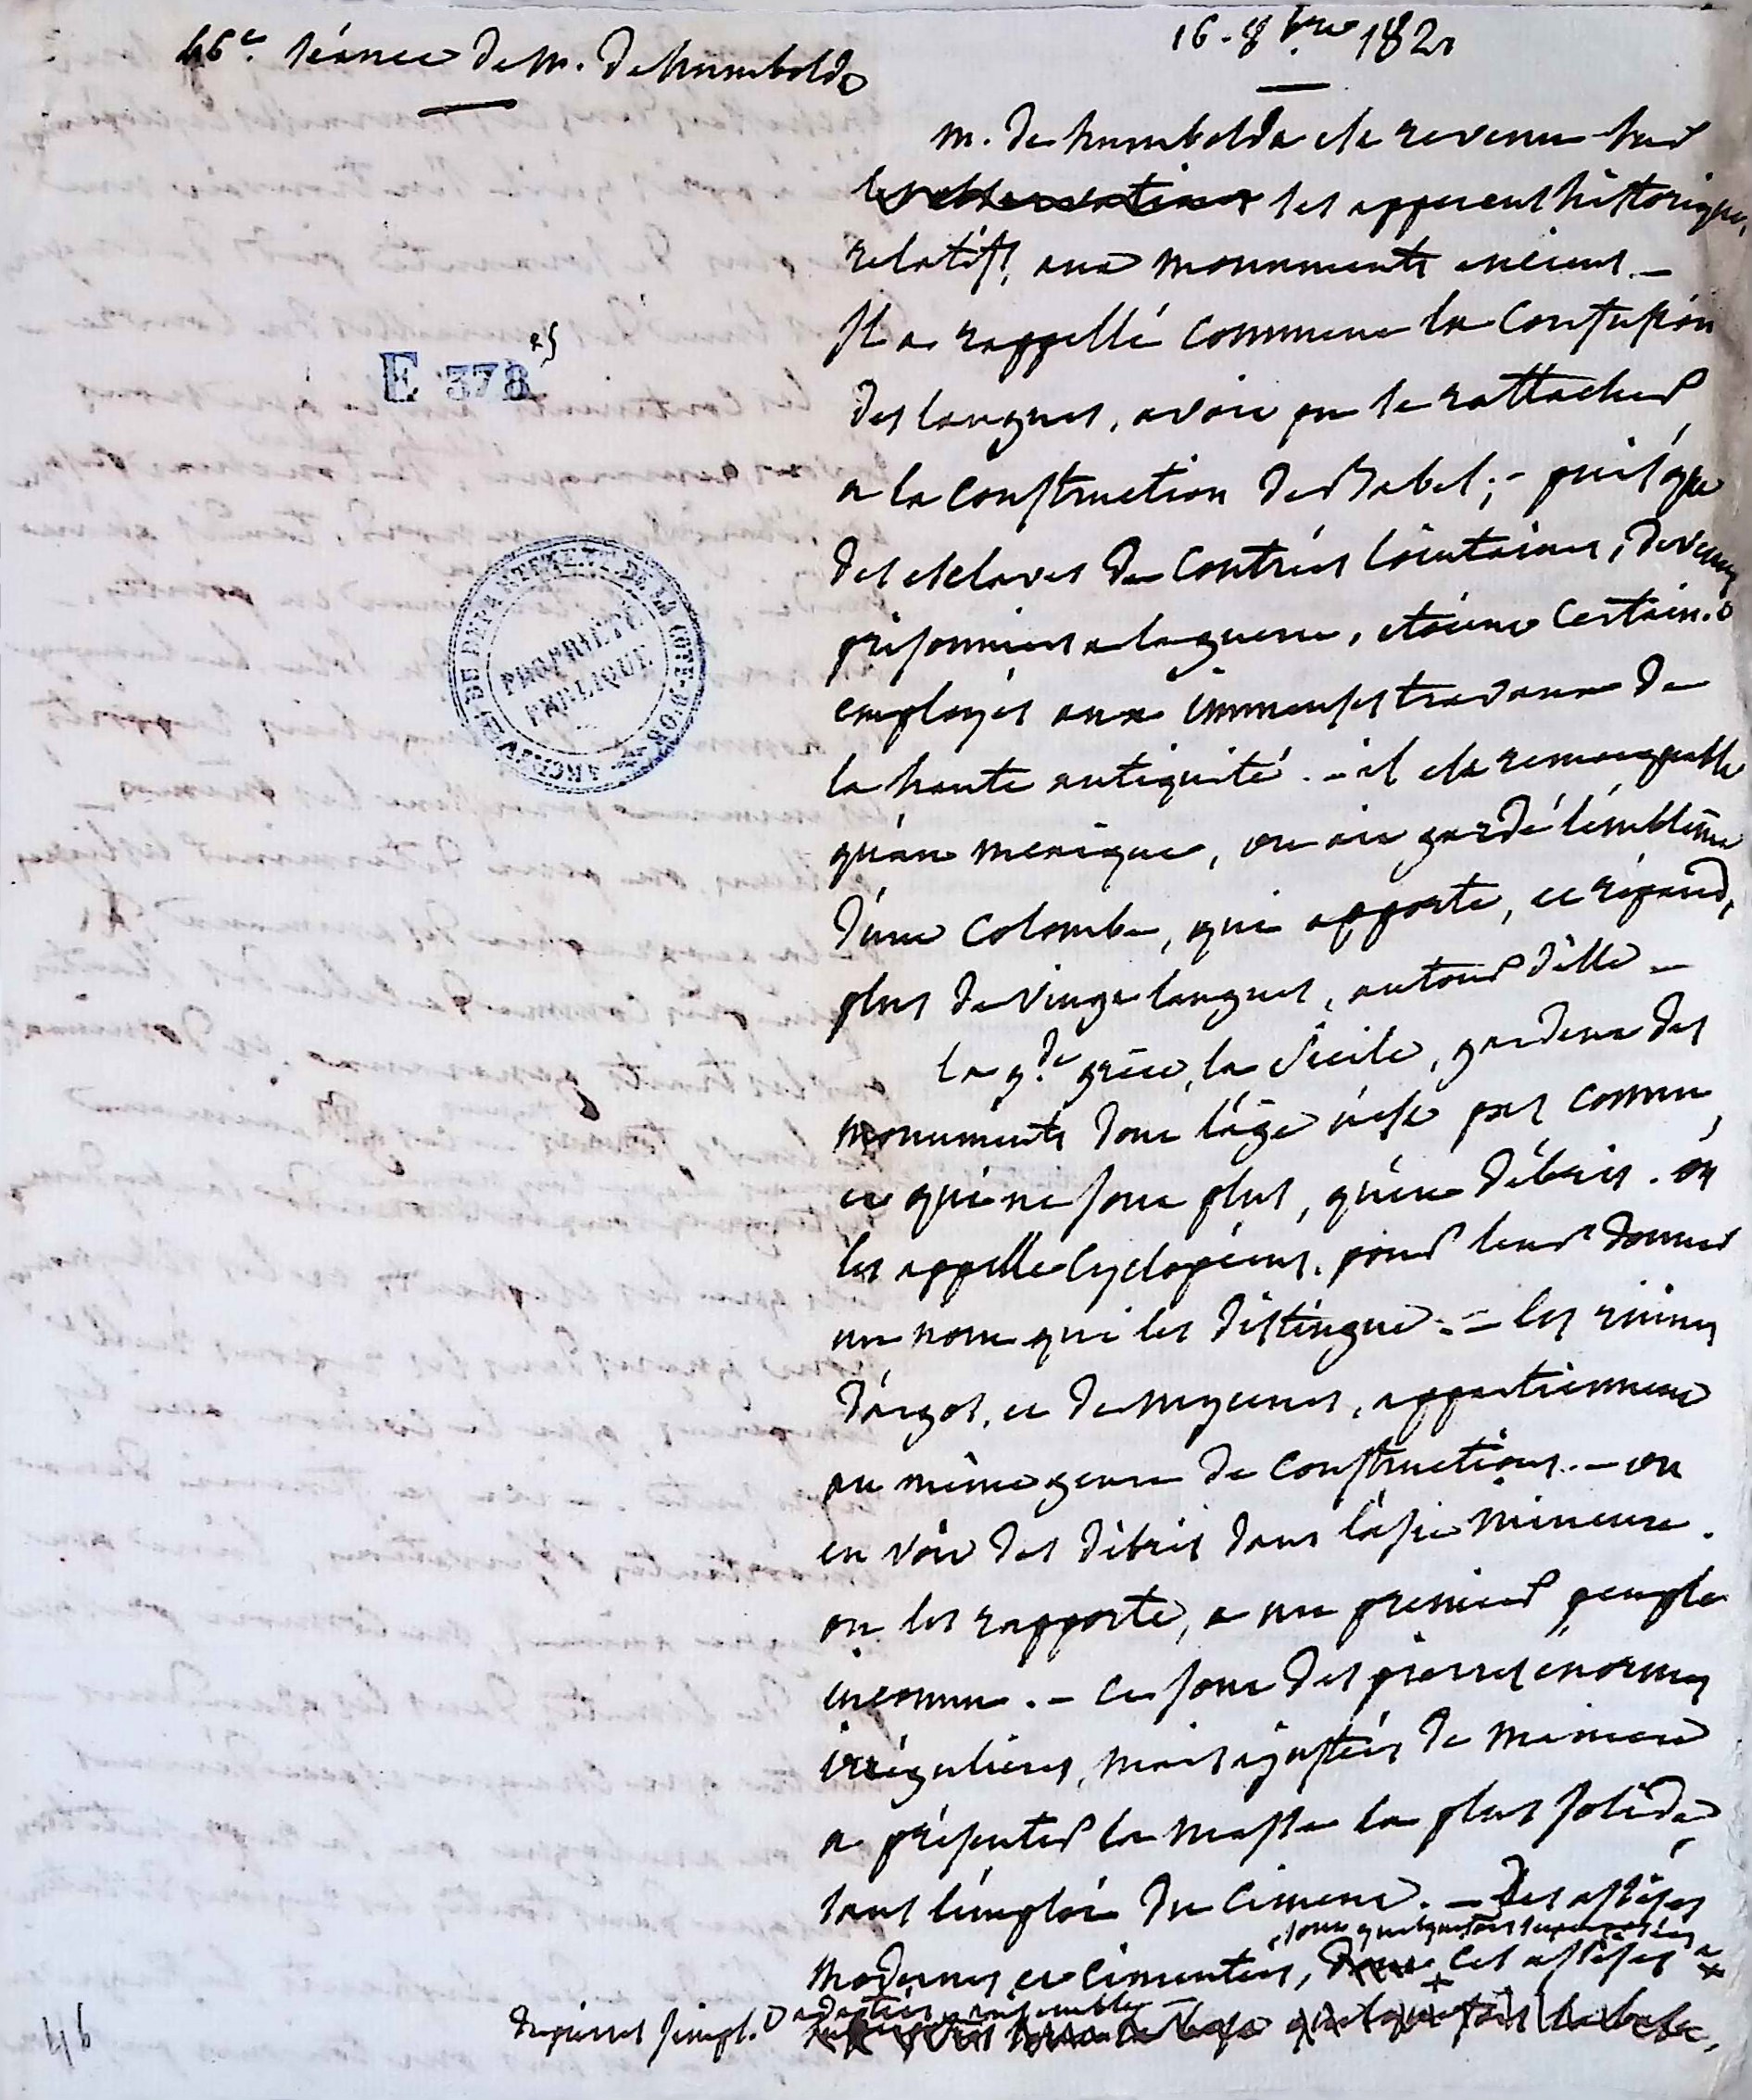 46e. séance de M. de humboldt
16. 8bre 182
M. de humboldt est revenu sur
les observations les apperçus historiques,
relatifs, aux monuments anciens. —
Il a rappellé comment la confusion
des langues, avoit pu se rattacher
a la construction de Babel; - puisque
des esclaves de contrées lointaines, devenus
prisonniers a la guerre, etoient certain.t
employés aux immenses travaux de
la haute antiquité. — il est remarquable
qu'au mexique, on ait gardé l'emblême
d'une colombe, qui apporte, et répand,
plus de vingt langues, autour d'elle —
la g.de grèce, la Sicile, gardent des
monuments dont l'âge n'est pas connu,
et qui ne sont plus, qu'en débris. on
les appelle Cyclopéens, pour leur donner
un nom qui les distingue. — les ruines
d'argos, et de mycenes, appartiennent
au même genre de constructions. — on
en voit des débris dans l'asie mineure.
on les rapporte, a un premier peuple
inconnu. — ce sont des pierres enormes
irrégulieres, mais ajustées de maniere
a présenter la masse la plus solide
sans l'emploi du ciment. — Des assises
sont quelquefois superposées
modernes et cimentées, ces assises
de pierres simpl.t adaptées ensemble —
E 378 25
ARCHIVES DU DEPARTEMENT DE LA COTE-D'OR
PROPRIÉTÉ
PUBLIQUE
46